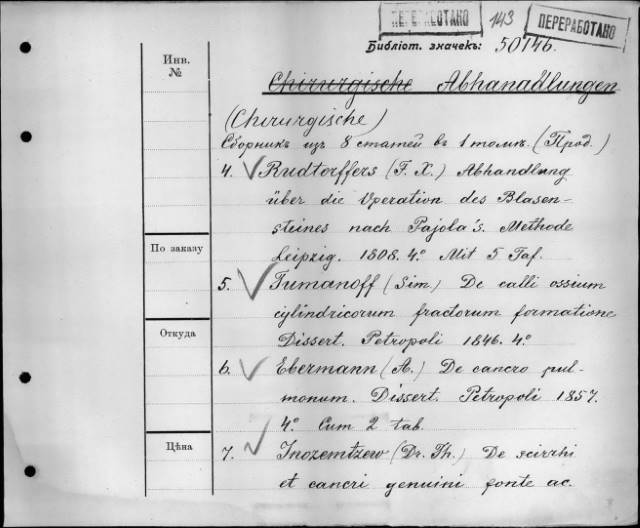 ПЕРЕРАБОТАНО
143
ПЕРЕРАБОТАНО
Библіот. значекъ: 50146.
Инв.
№
Chirurgische Abhanadlungen
(Chirurgische)
Сборникъ изъ 8 статей въ 1 томѣ. (Прод.)
4. Rudtorffers (F. X.) Abhandlung
über die Operation des Blasen-
steines nach Pajola's. Methode
Leipzig. 1808. 4.° Mit 5 Taf.
По заказу
5. Tumanoff (Sim.) De calli ossium
cylindricorum fractorum formatione
Dissert. Petropoli 1846. 4.°
Откуда
6. Ebermann (A.) De cancro pul-
monum. Dissert. Petropoli 1857.
4.° Cum 2 tab.
Цѣна
7. Inozemtzew (Dr. Th.) De scirrhi
et cancri genuini fonte ac.